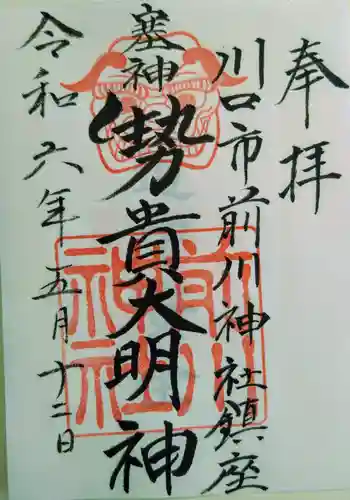 奉拝
川口市前川神社鎮座
塞神
勢貴大明神
令和六年五月十二日
前川
神社